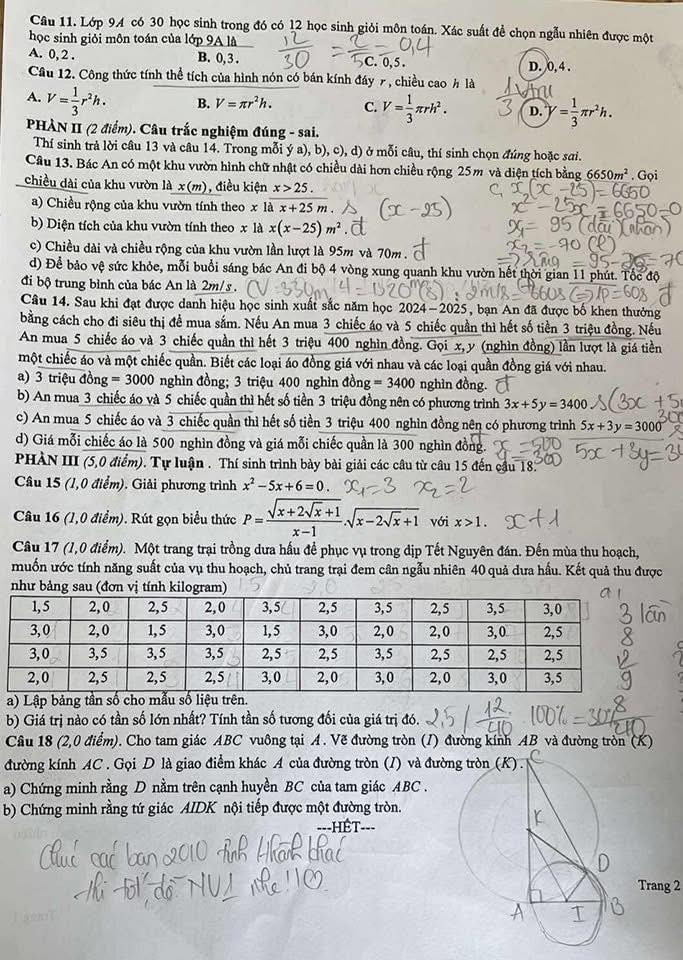 Câu 11. Lớp 9A có 30 học sinh trong đó có 12 học sinh giỏi môn toán. Xác suất để chọn ngẫu nhiên được một
học sinh giỏi môn toán của lớp 9A là 12/30 = 2/5 = 0,4
A. 0,2. B. 0,3. C. 0,5. D. 0,4.
Câu 12. Công thức tính thể tích của hình nón có bán kính đáy r, chiều cao h là
A. V = 1/3 r²h. B. V = πr²h. C. V = 1/3 πrh². D. V = 1/3 πr²h.
PHẦN II (2 điểm). Câu trắc nghiệm đúng - sai.
Thí sinh trả lời câu 13 và câu 14. Trong mỗi ý a), b), c), d) ở mỗi câu, thí sinh chọn đúng hoặc sai.
Câu 13. Bác An có một khu vườn hình chữ nhật có chiều dài hơn chiều rộng 25m và diện tích bằng 6650m². Gọi
chiều dài của khu vườn là x(m), điều kiện x > 25. c, x(x - 25) = 6650
a) Chiều rộng của khu vườn tính theo x là x + 25 m. s (x - 25) x² - 25x - 6650 = 0
b) Diện tích của khu vườn tính theo x là x(x - 25) m². đ x₁ = 95 (dài) (nhận)
c) Chiều dài và chiều rộng của khu vườn lần lượt là 95m và 70m. đ x₂ = -70 (l)
d) Để bảo vệ sức khỏe, mỗi buổi sáng bác An đi bộ 4 vòng xung quanh khu vườn hết thời gian 11 phút. Tốc độ
đi bộ trung bình của bác An là 2m/s. đ
Câu 14. Sau khi đạt được danh hiệu học sinh xuất sắc năm học 2024 – 2025, bạn An đã được bố khen thưởng
bằng cách cho đi siêu thị để mua sắm. Nếu An mua 3 chiếc áo và 5 chiếc quần thì hết số tiền 3 triệu đồng. Nếu
An mua 5 chiếc áo và 3 chiếc quần thì hết 3 triệu 400 nghìn đồng. Gọi x, y (nghìn đồng) lần lượt là giá tiền
một chiếc áo và một chiếc quần. Biết các loại áo đồng giá với nhau và các loại quần đồng giá với nhau.
a) 3 triệu đồng = 3000 nghìn đồng; 3 triệu 400 nghìn đồng = 3400 nghìn đồng. đ
b) An mua 3 chiếc áo và 5 chiếc quần thì hết số tiền 3 triệu đồng nên có phương trình 3x + 5y = 3400 s (3x + 5
c) An mua 5 chiếc áo và 3 chiếc quần thì hết số tiền 3 triệu 400 nghìn đồng nên có phương trình 5x + 3y = 3000
d) Giá mỗi chiếc áo là 500 nghìn đồng và giá mỗi chiếc quần là 300 nghìn đồng. đ x = 500 y = 300 5x + 3y = 34
PHẦN III (5,0 điểm). Tự luận . Thí sinh trình bày bài giải các câu từ câu 15 đến câu 18.
Câu 15 (1,0 điểm). Giải phương trình x² - 5x + 6 = 0. x₁ = 3 x₂ = 2
Câu 16 (1,0 điểm). Rút gọn biểu thức P = √(x + 2√x + 1)/(x - 1) . √(x - 2√x + 1) với x > 1. x + 1
Câu 17 (1,0 điểm). Một trang trại trồng dưa hấu để phục vụ trong dịp Tết Nguyên đán. Đến mùa thu hoạch,
muốn ước tính năng suất của vụ thu hoạch, chủ trang trại đem cân ngẫu nhiên 40 quả dưa hấu. Kết quả thu được
như bảng sau (đơn vị tính kilogram)
1,5 2,0 2,5 2,0 3,5 2,5 3,5 2,5 3,5 3,0
3,0 2,0 1,5 3,0 1,5 3,0 2,0 2,0 3,0 2,5
3,0 3,5 3,5 3,5 2,5 2,5 3,5 2,5 2,5 2,5
2,0 2,5 2,5 2,5 3,0 2,0 3,0 2,0 3,0 3,5
a,
3 lần
8
12
9
8
a) Lập bảng tần số cho mẫu số liệu trên.
b) Giá trị nào có tần số lớn nhất? Tính tần số tương đối của giá trị đó. 2,5 / 12/40 . 100% = 30%
Câu 18 (2,0 điểm). Cho tam giác ABC vuông tại A. Vẽ đường tròn (I) đường kính AB và đường tròn (K)
đường kính AC. Gọi D là giao điểm khác A của đường tròn (I) và đường tròn (K).
a) Chứng minh rằng D nằm trên cạnh huyền BC của tam giác ABC.
b) Chứng minh rằng tứ giác AIDK nội tiếp được một đường tròn.
---HẾT---
Chúc các bạn 2010 tỉnh
thi tốt, đỗ NV1 nhé!!
C
K
D
A I B
Trang 2